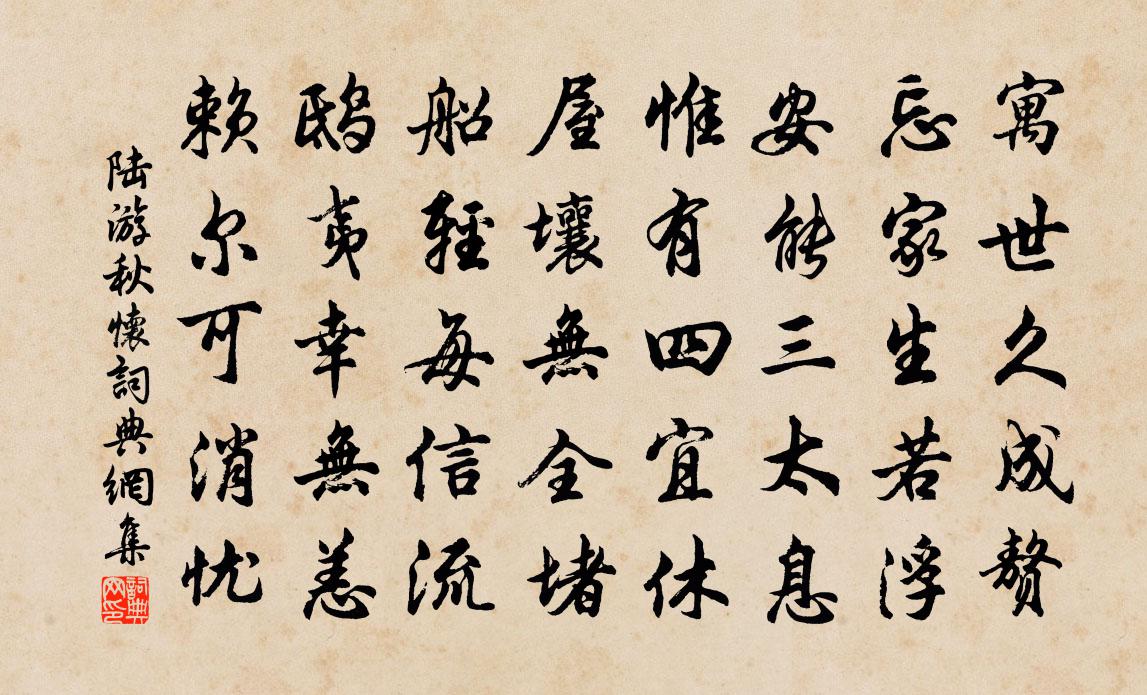 寓世久成赘
忘家生若浮
安能三太息
惟有四宜休
屋壞無全堵
船輕每信流
鸱夷幸無恙
赖尔可消忧
陆游秋懷詞典網集
詞典网印